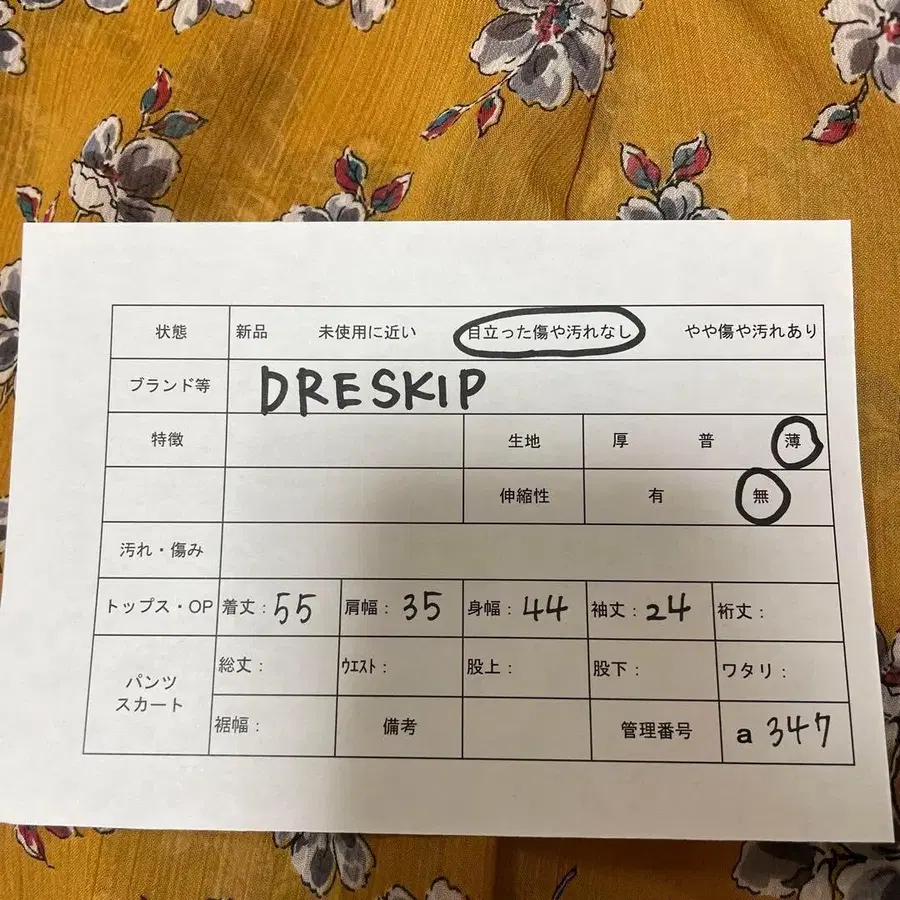 状態 新品 未使用に近い 目立った傷や汚れなし やや傷や汚れあり
ブランド等 DRESKIP
特徴 生地 厚 普 薄
伸縮性 有 無
汚れ・傷み
トップス・OP 着丈：55 肩幅：35 身幅：44 袖丈：24 裄丈：
パンツ スカート 総丈： ｳｴｽﾄ： 股上： 股下： ワタリ：
裾幅： 備考 管理番号 a 347